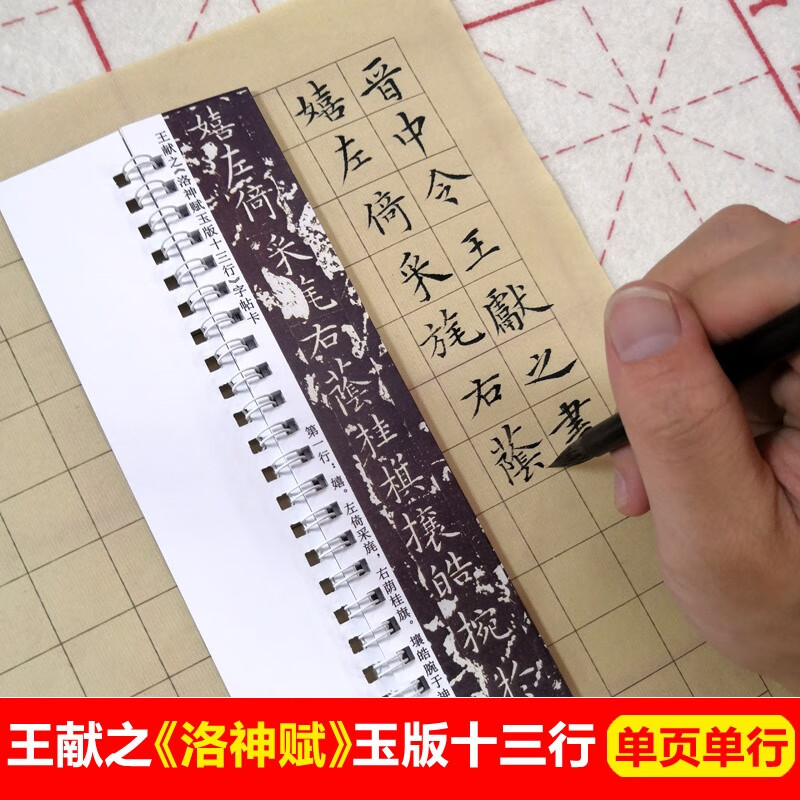 晋中令王獻之書
嬉左倚采旄右蔭
嬉左倚采旄右蔭桂棋攘皓捥
王献之《洛神赋玉版十三行》字帖卡
第一行：嬉。左倚采旄，右荫桂旗。壤皓腕于神
王献之《洛神赋》玉版十三行 单页单行